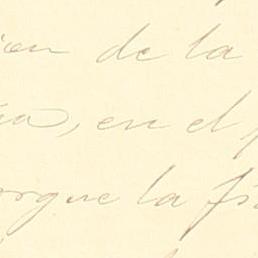 ion de la
ia, en el
orque la fi